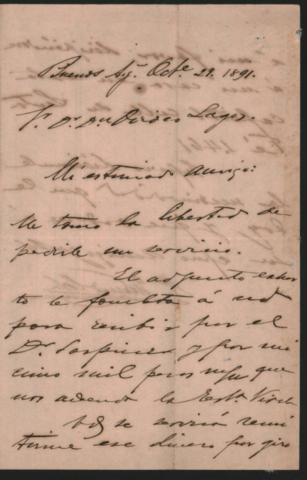 Buenos Ay. Octe 28. 1891.
Sr. Dr. Dn Lagos.
Mi estimado amigo:
Me tomo la libertad de
pedirle un servicio.
El adjunto
to le faculta á ud
para recibir por el
Dr. y por mi
cinco mil pesos m/n que
nos adeuda la Esta.
Vd se servirá remi
tirme ese dinero por giro